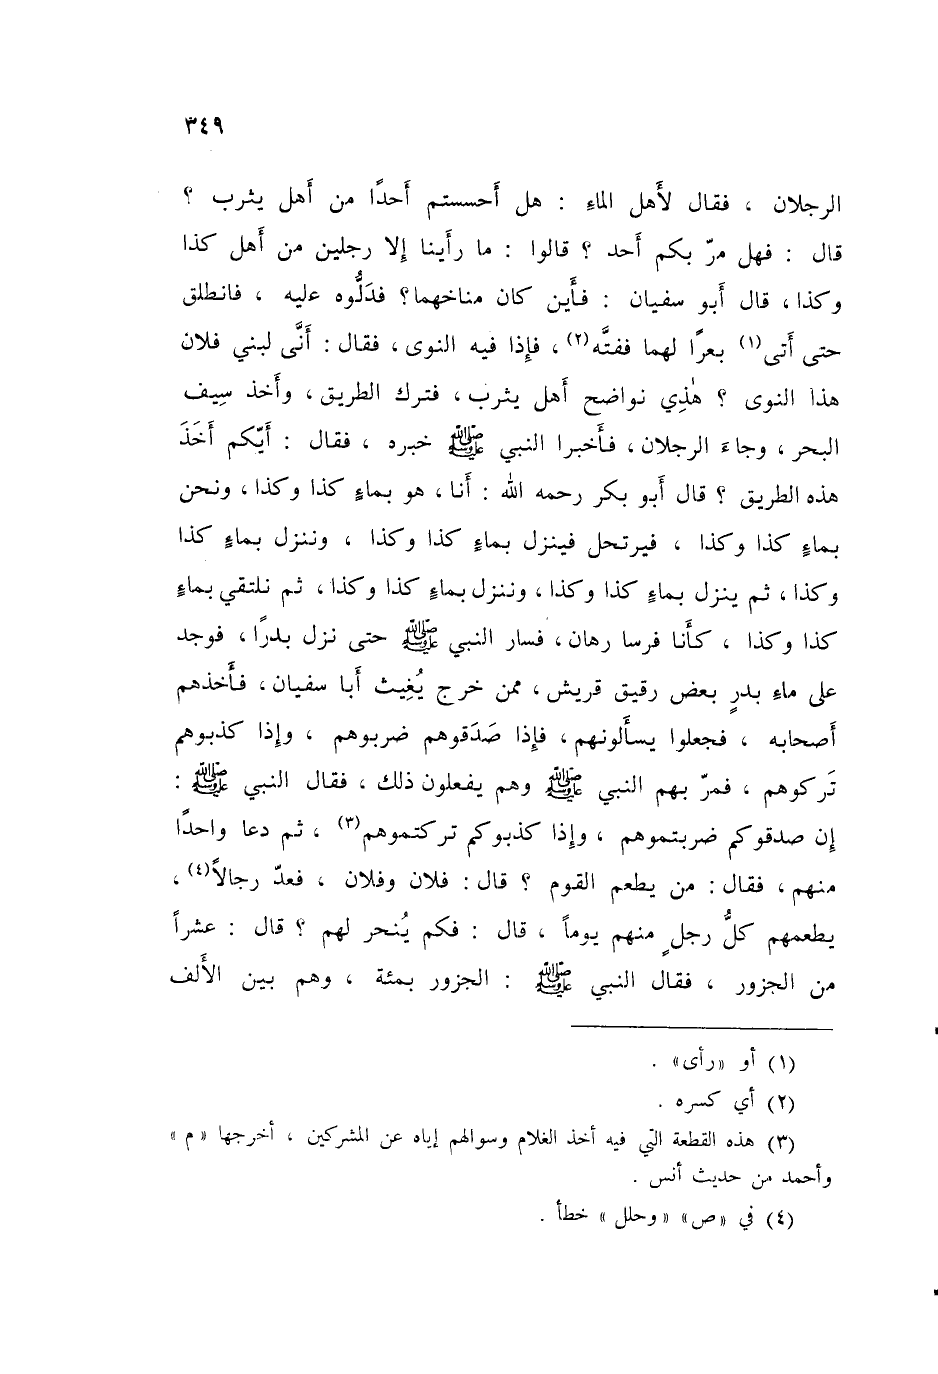 ٣٤٩
الرجلان ، فقال لأَهل الماءِ : هل أَحسستم أَحدًا من أَهل يثرب ؟
قال : فهل مرّ بكم أَحد ؟ قالوا : ما رأَينا إلا رجلين من أَهل كذا
وكذا ، قال أَبو سفيان : فأَين كان مناخهما؟ فدَلُّوه عليه ، فانطلق
حتى أَتى(١) بعرًا لهما ففتَّه(٢) ، فإِذا فيه النوى ، فقال : أَنَّى لبني فلان
هذا النوى ؟ هٰذِي نواضح أَهل يثرب ، فترك الطريق ، وأَخذ سِيف
البحر ، وجاءَ الرجلان ، فأَخبرا النبي ﷺ خبره ، فقال : أَيّكم أَخَذَ
هذه الطريق ؟ قال أَبو بكر رحمه الله : أَنا ، هو بماءٍ كذا وكذا ، ونحن
بماءٍ كذا وكذا ، فيرتحل فينزل بماءٍ كذا وكذا ، وننزل بماءٍ كذا
وكذا ، ثم ينزل بماءٍ كذا وكذا ، وننزل بماءٍ كذا وكذا ، ثم نلتقي بماءٍ
كذا وكذا ، كأَنا فرسا رهان ، فسار النبي ﷺ حتى نزل بدرًا ، فوجد
على ماءِ بدرٍ بعض رقيق قريش ، ممن خرج يُغِيث أَبا سفيان ، فأَخذهم
أَصحابه ، فجعلوا يسأَلونهم ، فإِذا صَدَقوهم ضربوهم ، وإِذا كذبوهم
تَركوهم ، فمرّ بهم النبي ﷺ وهم يفعلون ذلك ، فقال النبي ﷺ :
إِن صدقوكم ضربتموهم ، وإِذا كذبوكم تركتموهم(٣) ، ثم دعا واحدًا
منهم ، فقال : من يطعم القوم ؟ قال : فلان وفلان ، فعدّ رجالاً(٤) ،
يطعمهم كلُّ رجلٍ منهم يوماً ، قال : فكم يُنحر لهم ؟ قال : عشراً
من الجزور ، فقال النبي ﷺ : الجزور بمئة ، وهم بين الأَلف
(١) أو «رأى» .
(٢) أي كسره .
(٣) هذه القطعة التي فيه أخذ الغلام وسوالهم إياه عن المشركين ، أخرجها « م »
وأحمد من حديث أنس .
(٤) في «ص» « وحلل » خطأ .